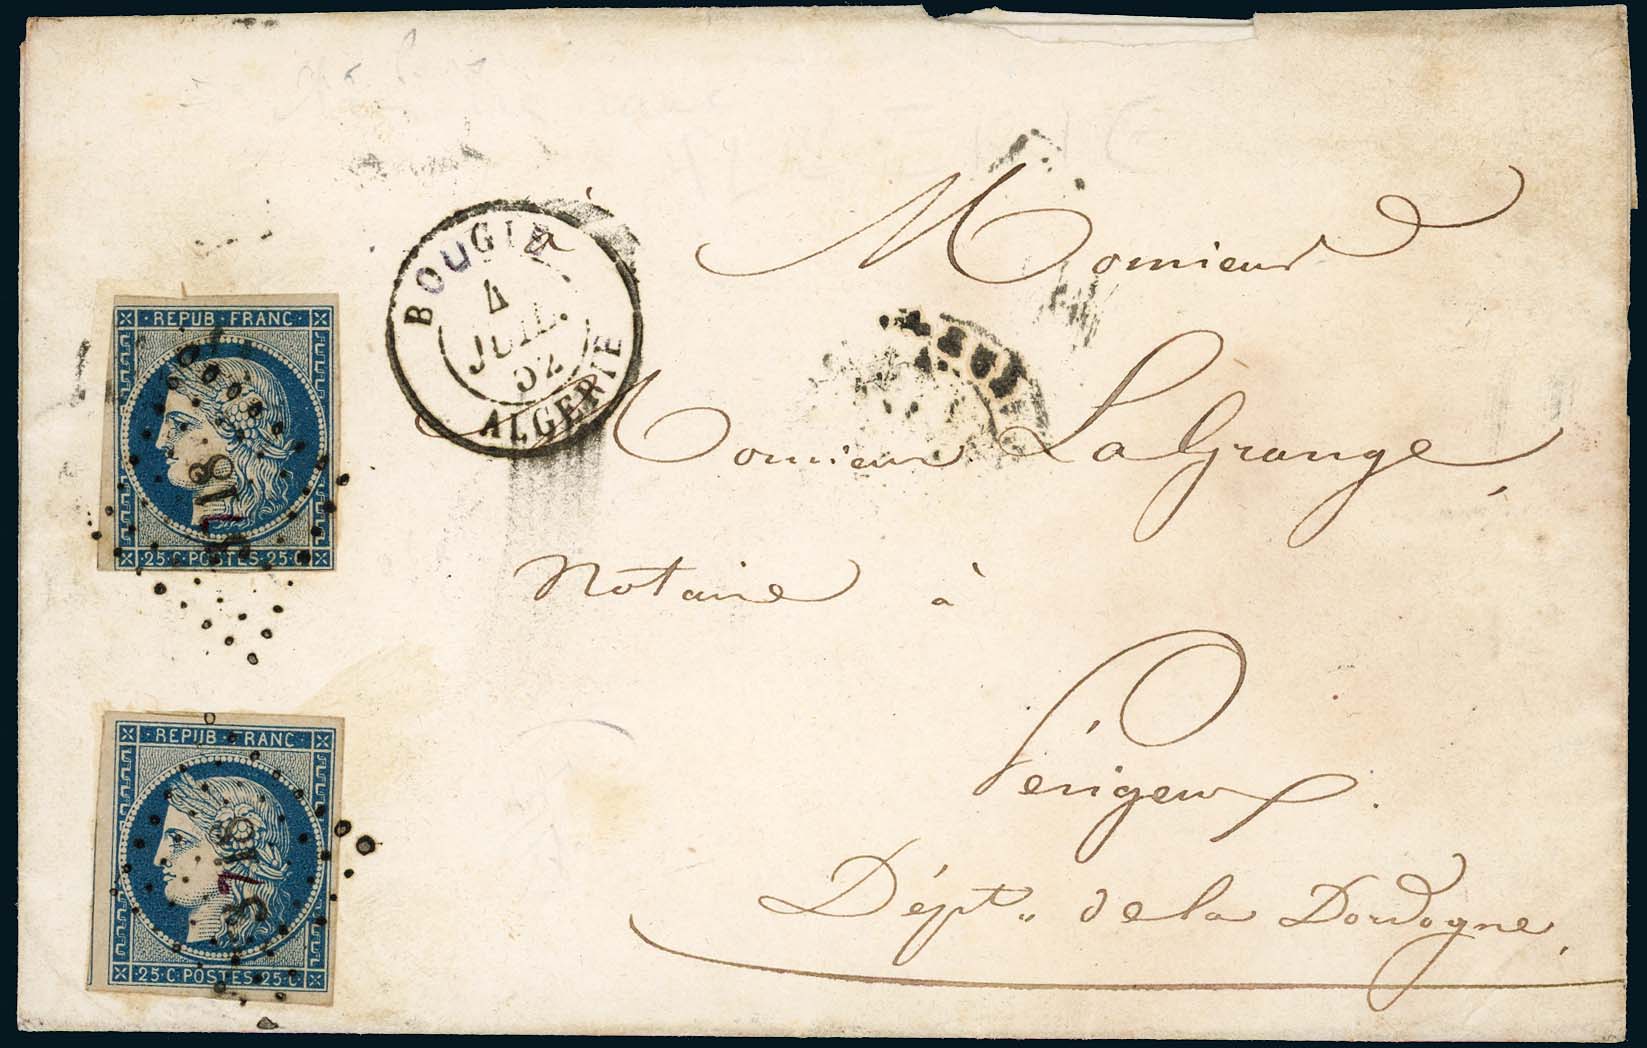 BOUGIE
4
JUIL.
52
ALGERIE
Monsieur
Monsieur LaGrange,
Notaire à
Périgeux.
Dépt. de la Dordogne,
REPUB·FRANC·
25·C·POSTES·25·C·
REPUB·FRANC·
25·C·POSTES·25·C·